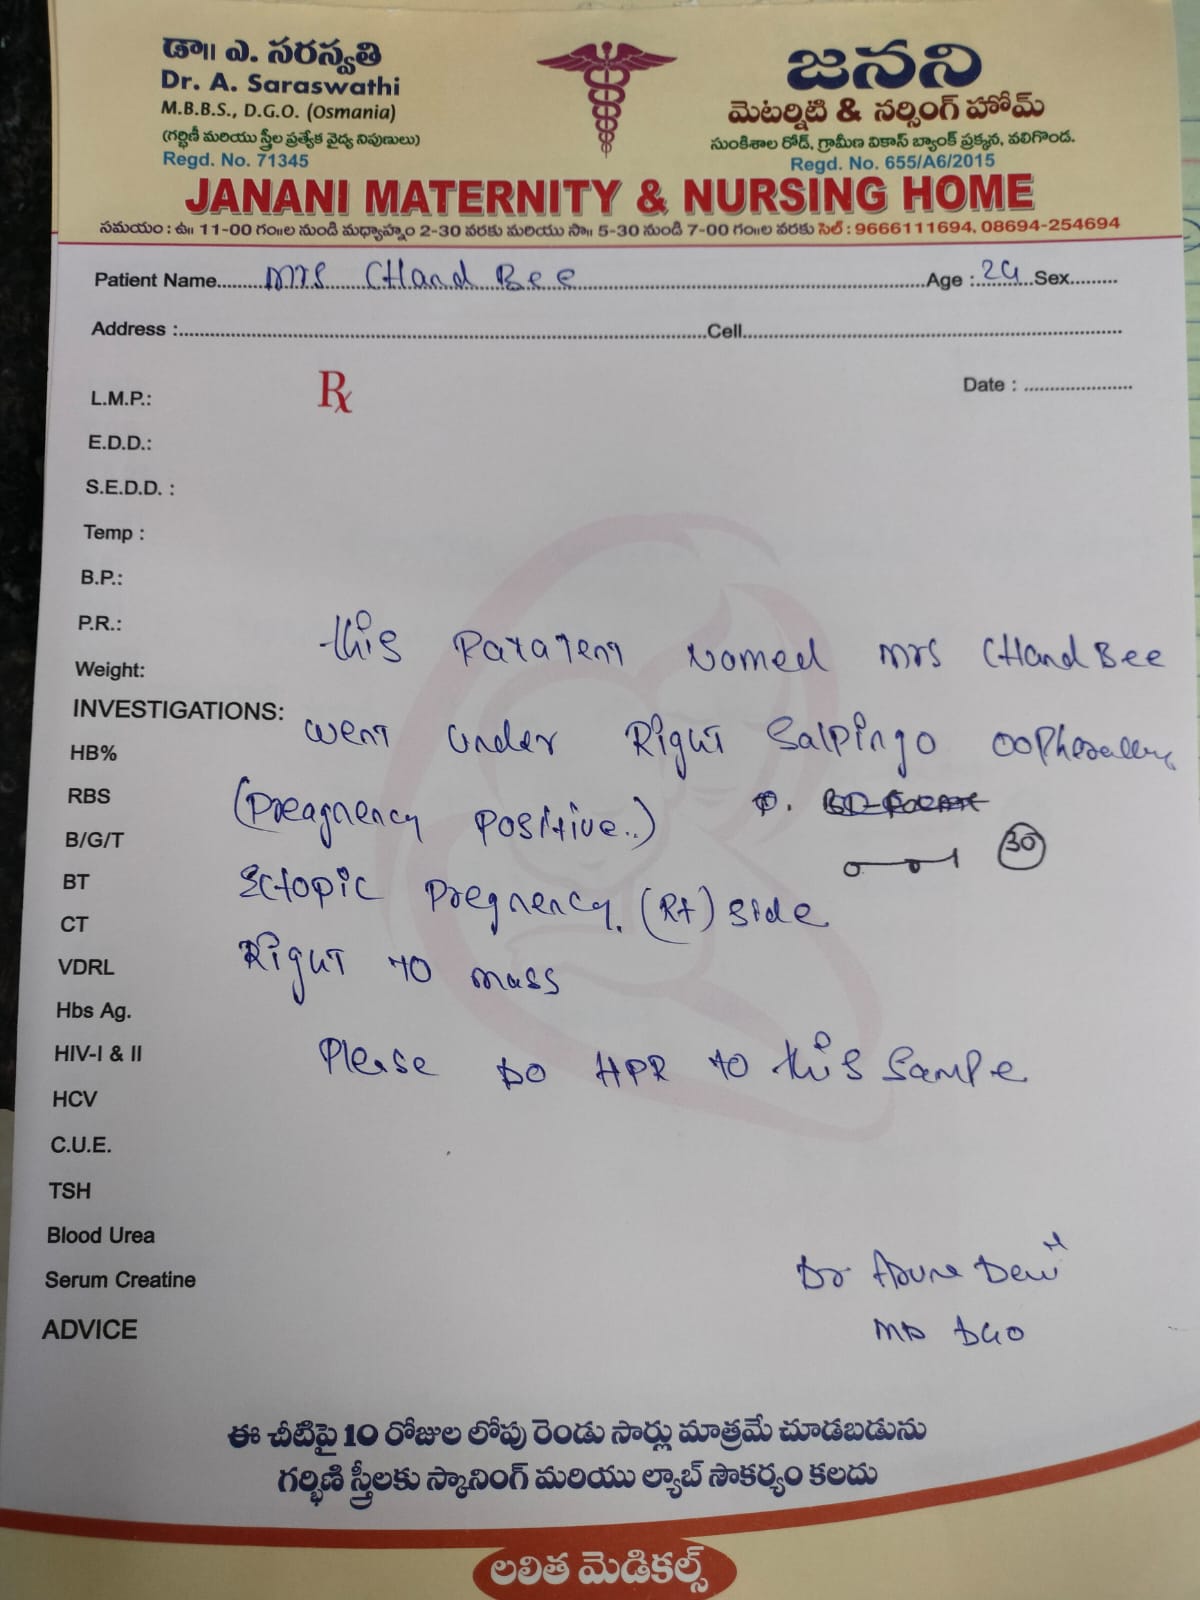 డా॥ ఎ. సరస్వతి
Dr. A. Saraswathi
M.B.B.S., D.G.O. (Osmania)
(గర్భిణీ మరియు స్త్రీల ప్రత్యేక వైద్య నిపుణులు)
Regd. No. 71345
జనని
మెటర్నిటి & నర్సింగ్ హోమ్
సుంకిశాల రోడ్, గ్రామీణ వికాస్ బ్యాంక్ ప్రక్కన, వలిగొండ.
Regd. No. 655/A6/2015
JANANI MATERNITY & NURSING HOME
సమయం : ఉ॥ 11-00 గం॥ల నుండి మధ్యాహ్నం 2-30 వరకు మరియు సా॥ 5-30 నుండి 7-00 గం॥ల వరకు సెల్ : 9666111694, 08694-254694
Patient Name Mrs CHand Bee Age : Sex
Address : Cell
Rx
Date :
L.M.P.:
E.D.D.:
S.E.D.D. :
Temp :
B.P.:
P.R.:
this named Mrs CHand Bee
Weight:
INVESTIGATIONS:
went under Right Salpingo
HB%
RBS
(Preagnency Positive..)
B/G/T
30
BT
Ectopic Pregnency. (Rt) side
CT
Right TO mass
VDRL
Hbs Ag.
HIV-I & II
Please DO HPR to this Sampe
HCV
C.U.E.
TSH
Blood Urea
Serum Creatine
Dr Aruna Devi
ADVICE
MD DGO
ఈ చీటిపై 10 రోజుల లోపు రెండు సార్లు మాత్రమే చూడబడును
గర్భిణి స్త్రీలకు స్కానింగ్ మరియు ల్యాబ్ సౌకర్యం కలదు
లలిత మెడికల్స్